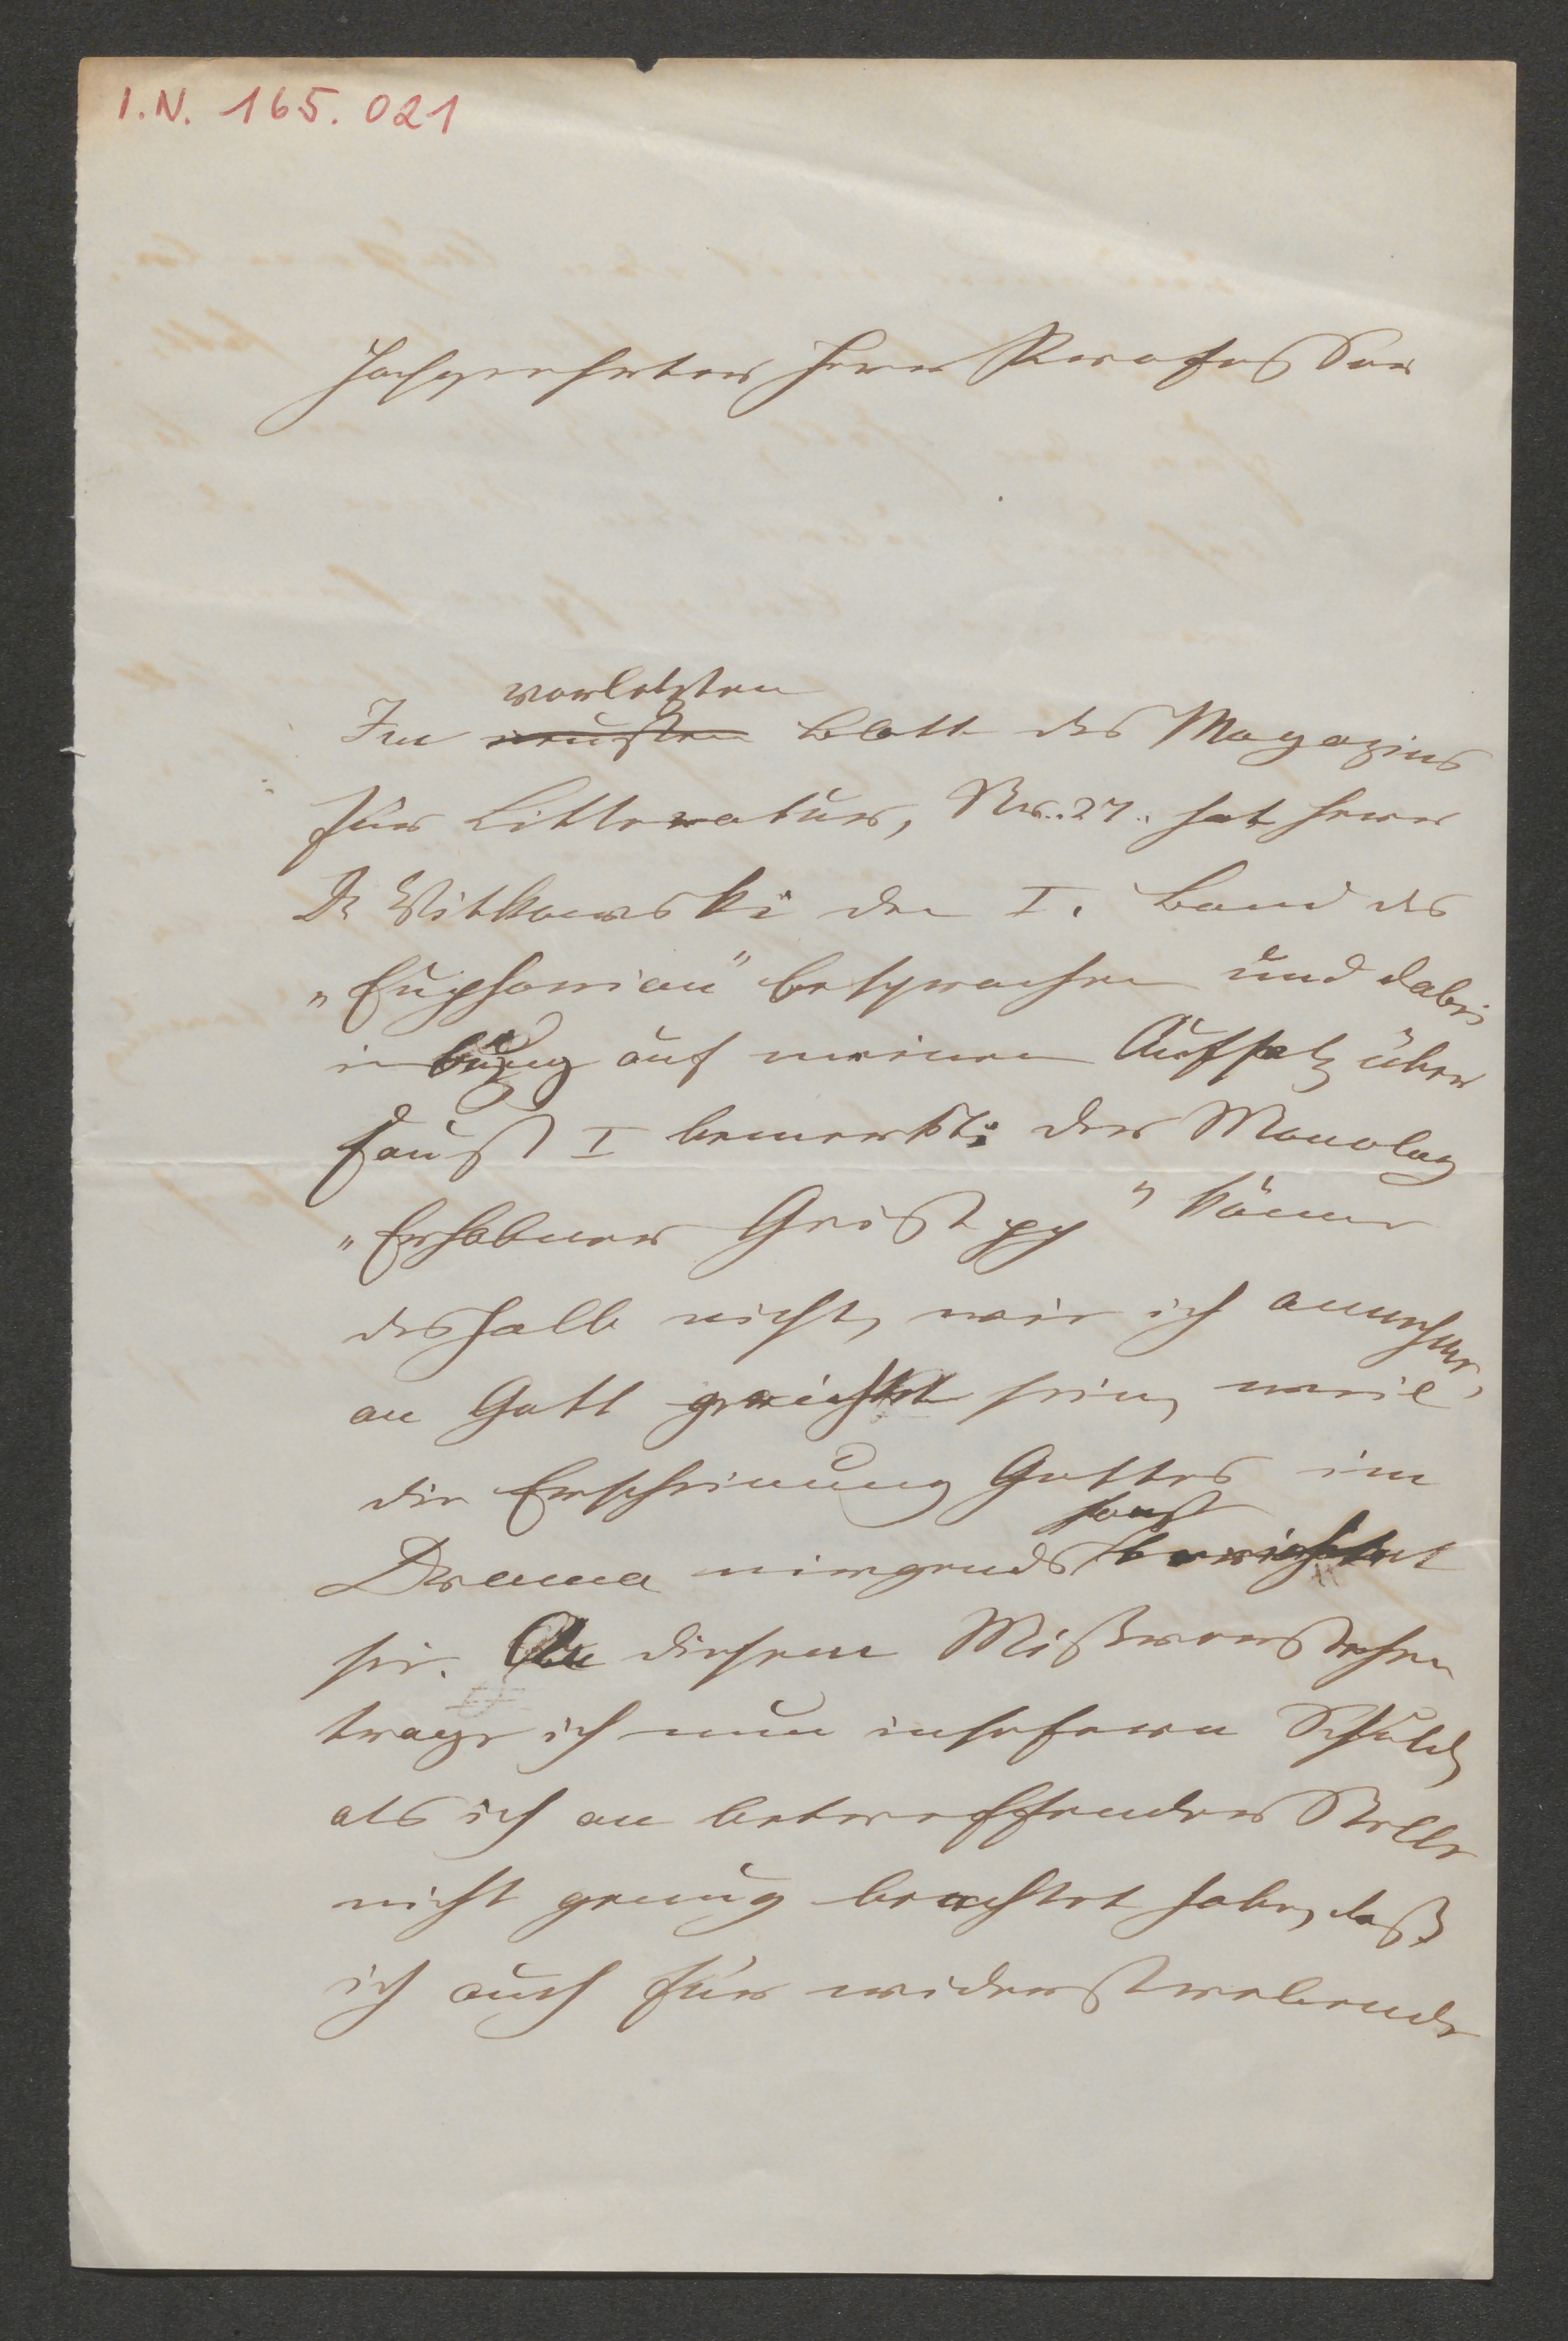 I.N. 165.021
Hochgeehrter Herr Professor
vorletzten
Im neusten Blatt des Magazins
für Litteratur, Nr. 27. hat Herr
Dr Witkowski den I. Band des
„Euphorion" besprochen und dabei
in bezug auf meinen Aufsatz über
Faust I bemerkt: der Monolog
„Erhabner Geist pp" könne
deshalb nicht, wie ich annehme,
an Gott gerichtet sein, weil
die Erscheinung Gottes im
sonst
Drama nirgends berichtet
sei. An diesem Mißverstehen
trage ich nun insofern Schuld,
als ich an betreffender Stelle
nicht genug beachtet habe, daß
ich auch für widerstrebende